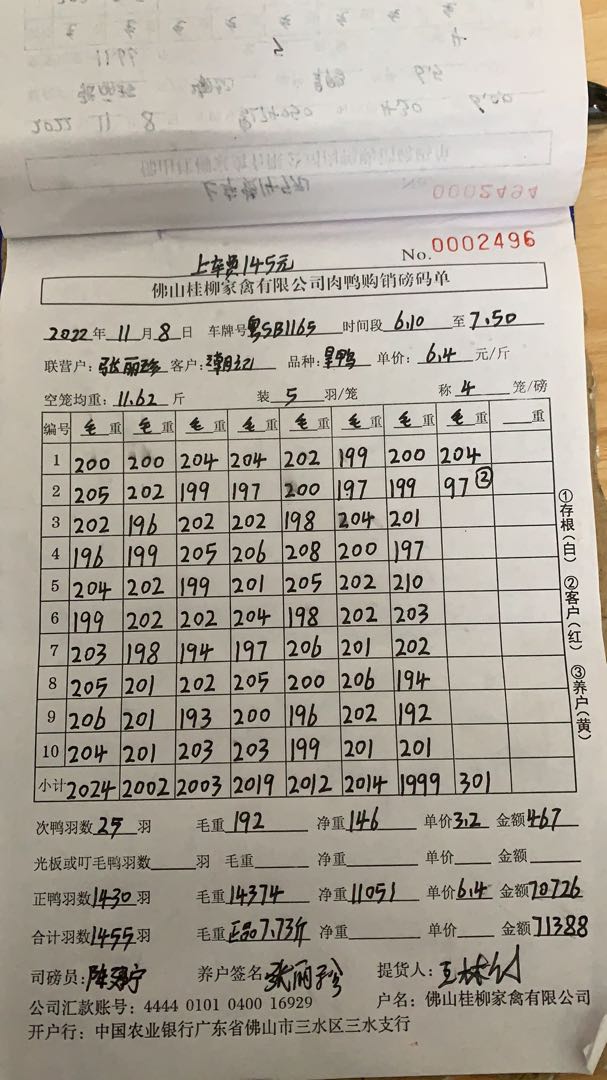 0002494
2022 11 8
上车费145元
No.0002496
佛山桂柳家禽有限公司肉鸭购销磅码单
2022年11月8日 车牌号粤SB1165 时间段6.10至7.50
联营户:张丽珍 客户: 品种: 单价:6.4元/斤
空笼均重:11.62斤 装5羽/笼 称4笼/磅
编号 毛重 毛重 毛重 毛重 毛重 毛重 毛重 毛重 重
1 200 200 204 204 202 199 200 204
2 205 202 199 197 200 197 199 97②
3 202 196 202 202 198 204 201
4 196 199 205 206 208 200 197
5 204 202 199 201 205 202 210
6 199 202 202 204 198 202 203
7 203 198 194 197 206 201 202
8 205 201 202 205 200 206 194
9 206 201 193 200 196 202 192
10 204 201 203 203 199 201 201
小计 2024 2002 2003 2019 2012 2014 1999 301
①存根(白) ②客户(红) ③养户(黄)
次鸭羽数25羽 毛重192 净重146 单价3.2 金额467
光板或叮毛鸭羽数 羽 毛重 净重 单价 金额
正鸭羽数1430羽 毛重14374 净重11051 单价6.4 金额70726
合计羽数1455羽 毛重正品7.73斤 净重 单价 金额71388
司磅员: 养户签名张丽珍 提货人:
公司汇款账号:4444 0101 0400 16929 户名:佛山桂柳家禽有限公司
开户行:中国农业银行广东省佛山市三水区三水支行